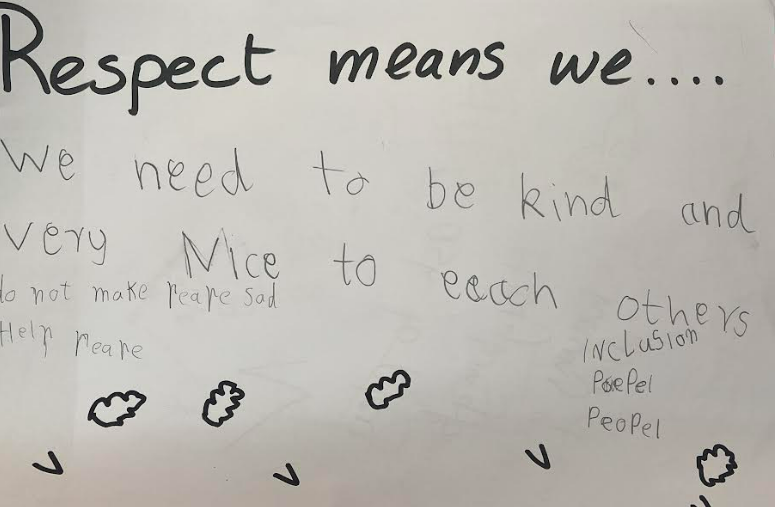 Respect means we....
We need to be kind and
very Nice to eeach others
do not make peape sad
Help peape
INCLUSION
PoePel
PeoPel